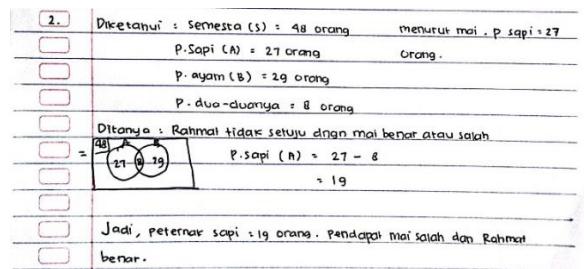 2. Diketahui : semesta (s) = 48 orang menurut mai . p sapi = 27
P.sapi (A) = 27 orang orang.
P. ayam (B) = 29 orang
P. dua-duanya = 8 orang
Ditanya : Rahmat tidak setuju dngn mai benar atau salah
= 48 A B P.sapi (A) = 27 - 8
27 8 29
= 19
Jadi, peternak sapi = 19 orang. Pendapat mai salah dan Rahmat
benar.